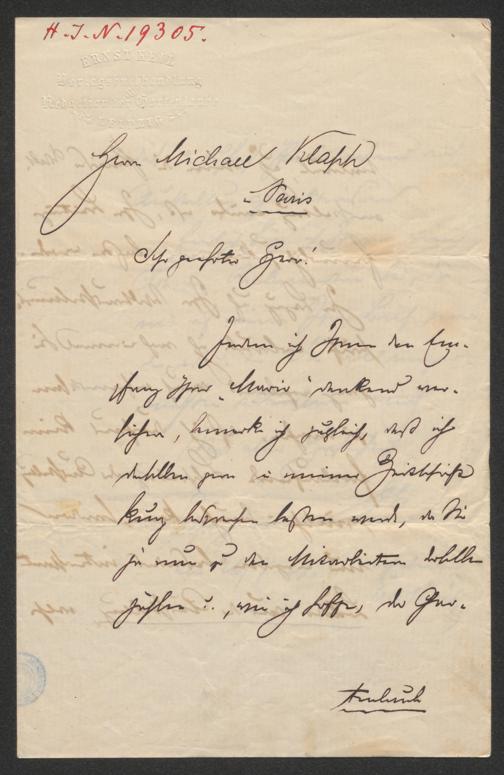 H. I. N. 19305.
ERNST KEIL
Verlagsbuchhandlung
Redaction der Gartenlaube
LEIPZIG
Herrn Michael Klapp
in Paris
Sehr geehrter Herr!
Indem ich Ihnen den Em-
pfang Ihrer „Marie“ dankend ver-
sichere, bemerke ich zugleich, daß ich
dieselben gern in meiner Zeitschrift
kurz besprechen lassen werde, da Sie
ja nun zu den Mitarbeitern derselben
zählen u., wie ich hoffe, der Gar-